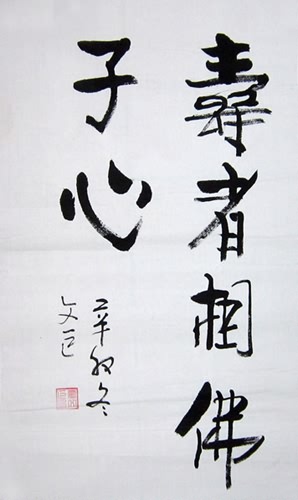 壽者相佛
子心
辛卯冬